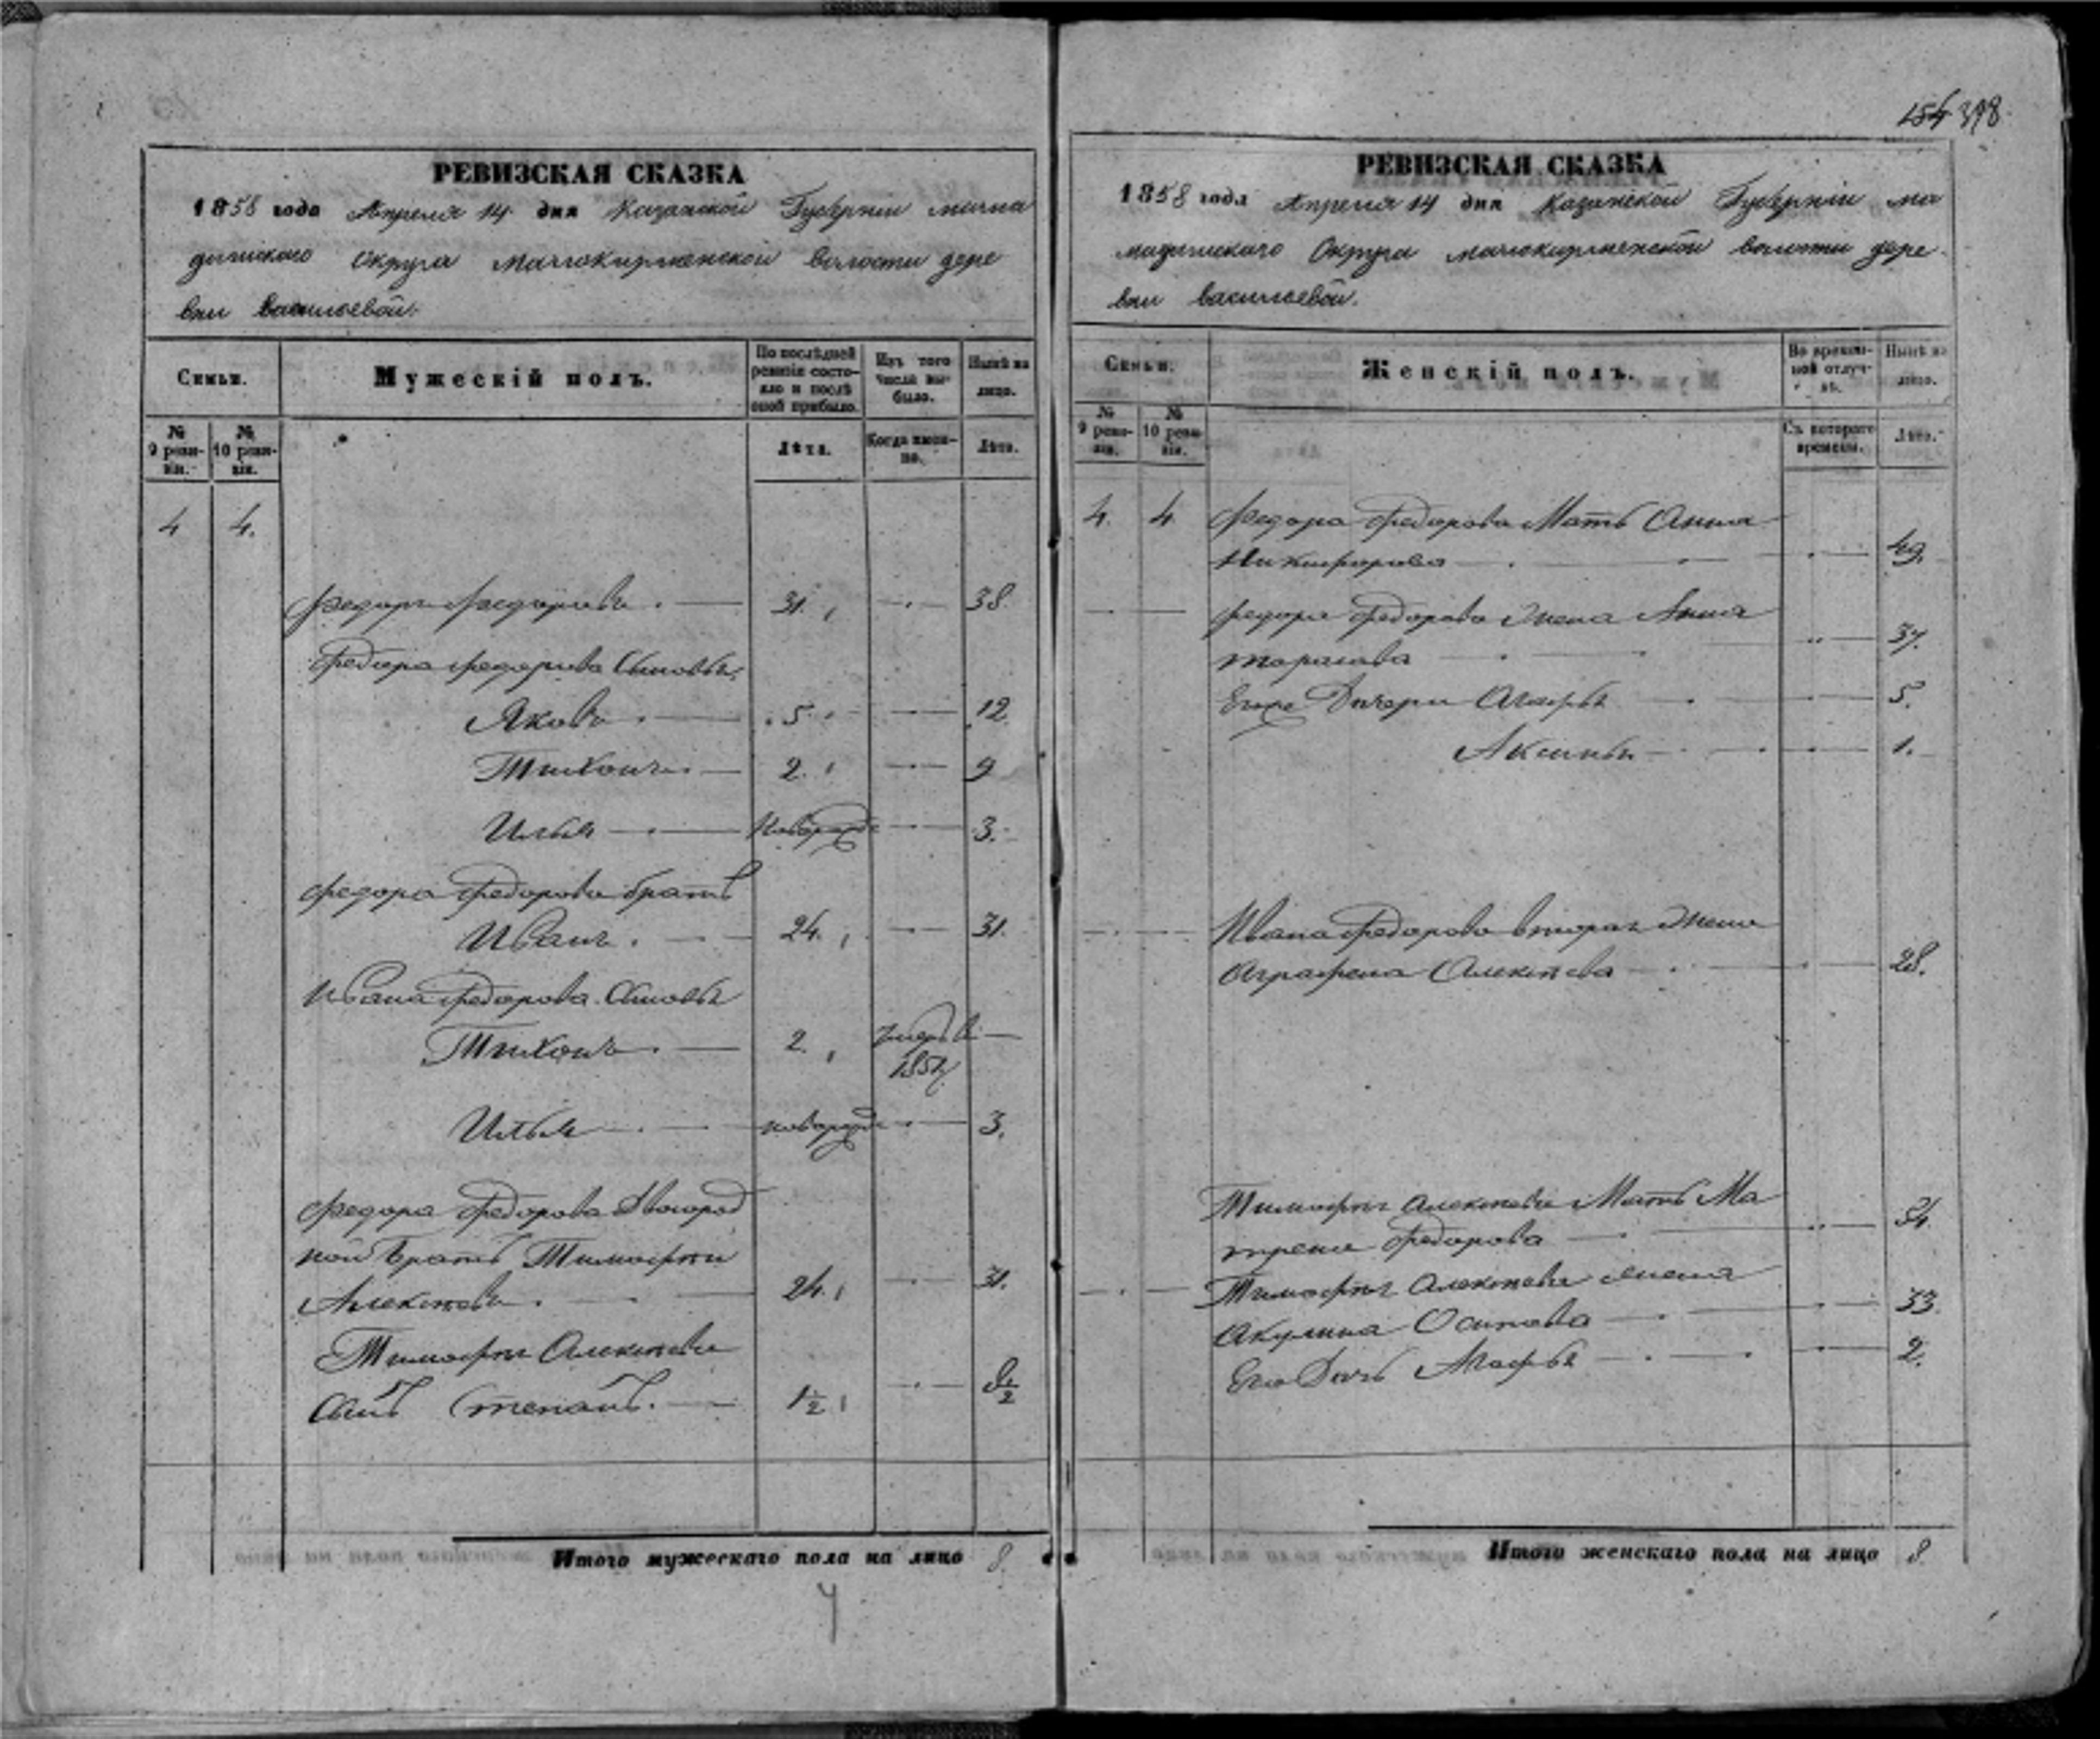 154 398
РЕВИЗСКАЯ СКАЗКА
1858 года Апреля 14 дня Казанской Губернии мама
дышскаго Округа малокирменской волости дере
вни васильевой.
Семьи.
Мужескій полъ.
По послѣдней ревизіи состояло и послѣ оной прибыло.
Изъ того числа выбыло.
Нынѣ на лицо.
№ 9 ревизіи.
№ 10 ревизіи.
Лѣта.
Когда именно.
Лѣта.
4 4.
Федоръ Федоровъ . — 31. — 38.
Федора Федорова Сыновья
Яковъ . — 5. — 12.
Тихонъ . — 2. — 9
Илья — новорожд — 3.
Федора Федорова братъ
Иванъ . — 24. — 31.
Ивана Федорова Сыновья
Тихонъ . — 2. умеръ в —
Илья — новорожд — 3.
Федора Федорова Двоюрод
ной Братъ Тимофей
Алексѣевъ . — 24. — 31.
Тимофея Алексѣева
Сынъ Степанъ. — 1/2 —
Итого мужескаго пола на лицо 8.
4
РЕВИЗСКАЯ СКАЗКА
1858 года Апреля 14 дня Казанской Губернии ма
мадышскаго Округа малокирменской волости дере
вни васильевой.
Семьи.
Женскій полъ.
Во временной отлучкѣ.
Нынѣ на лицо.
№ 9 ревизіи.
№ 10 ревизіи.
Съ котораго времени.
Лѣта.
4. 4 Федора Федорова Мать Анна
Никифорова — 49.
Федора Федорова жена Анна
тарасова — 37.
Его Дочери Агафья — 5.
Аксинья — 1.
Ивана Федорова вторая жена
Аграфена Алексѣева — 28.
Тимофея Алексѣева Мать Ма
трена Федорова — 51.
Тимофея Алексѣева жена
Акулина Осипова — 33.
Его Дочь Агафья — 2.
Итого женскаго пола на лицо 8.